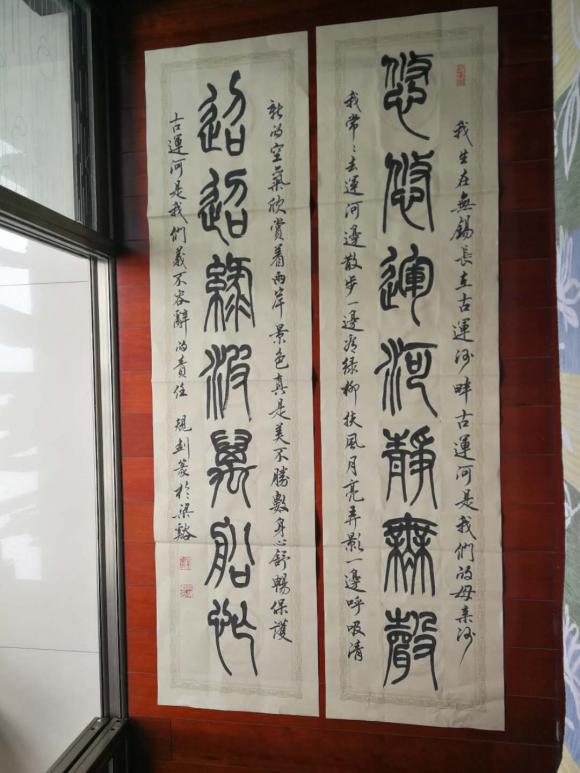 我生在無錫長在古運河畔古運河是我們的母亲河
悠悠運河靜無聲
我常々去運河邊散步一邊看绿柳扶風月亮弄影一邊呼吸清
新的空氣欣賞着兩岸景色真是美不勝數身心舒暢保護
迢迢綠波萬船
古運河是我們義不容辭的責任 篆於梁谿